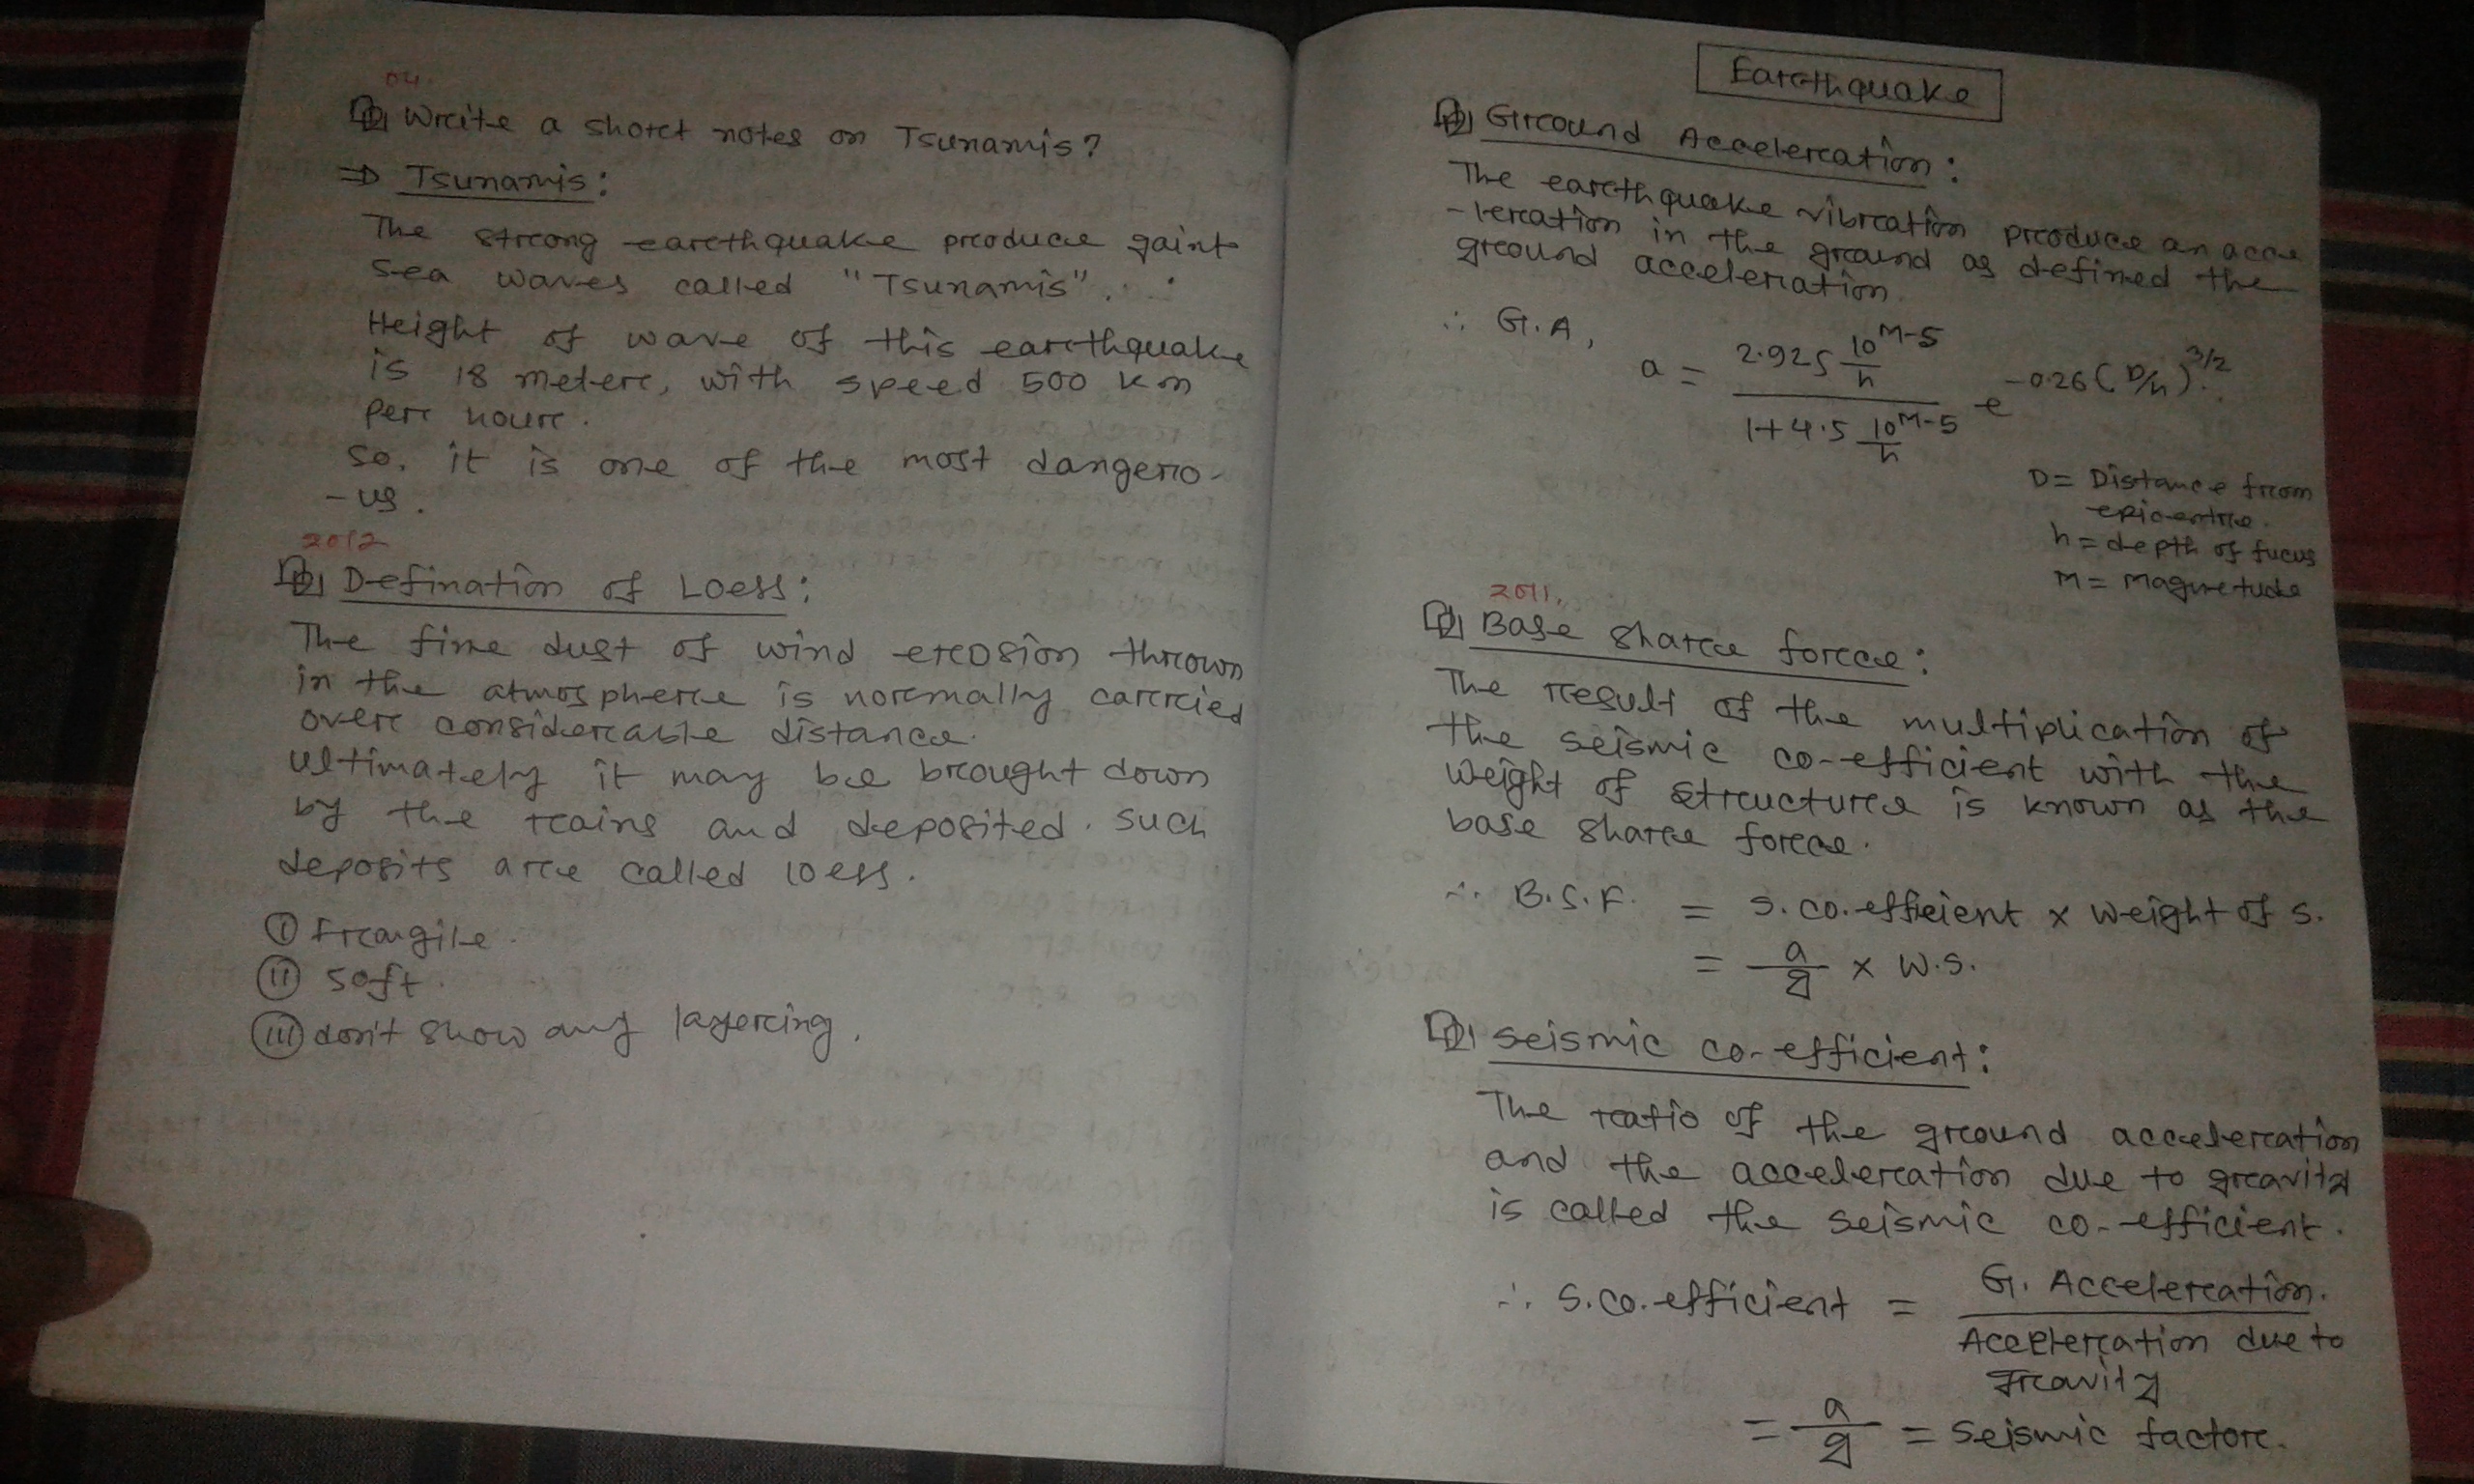 04.
Q Write a short notes on Tsunamis?
⇒ Tsunamis:
The strong earthquake produce gaint
sea waves called "Tsunamis".
Height of wave of this earthquake
is 18 meter, with speed 500 km
per hour.
So, it is one of the most dangero-
-us.
2012
Q Defination of Loess:
The fine dust of wind erosion thrown
in the atmosphere is normally carried
over considerable distance.
ultimately it may be brought down
by the rains and deposited. such
deposits are called loess.
(i) Frangile.
(ii) soft.
(iii) don't show any layering.
Earthquake
Q Ground Acceleration:
The earthquake vibration produce an acce
-leration in the ground as defined the
ground acceleration.
∴ G.A, a = (2.925 10^(M-5)/h) / (1+4.5 10^(M-5)/h) e^(-0.26(D/h)^(3/2)).
D = Distance from
epicentre.
h = depth of fucus
M = Magnetude
2011,
Q Base share force:
The result of the multiplication of
the seismic co-efficient with the
weight of structure is known as the
base share force.
∴ B.S.F. = S.co.efficient × weight of S.
= a/g × W.S.
Q seismic co-efficient:
The ratio of the ground acceleration
and the acceleration due to gravity
is called the seismic co-efficient.
∴ S.co.efficient = G. Acceleration. / Acceleration due to gravity
= a/g = seismic factor.